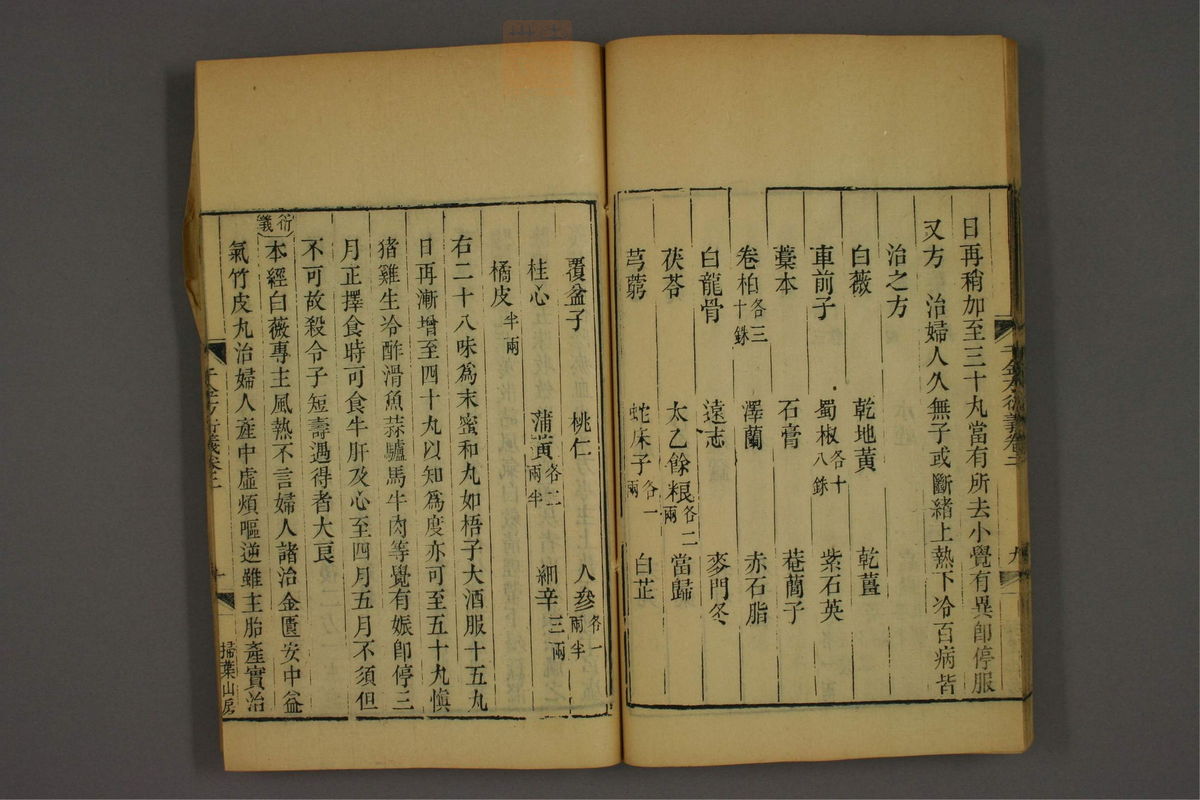 日再稍加至三十丸當有所去小覺有異卽停服
又方　治婦人久無子或斷緒上熱下冷百病皆
治之方
白薇　乾地黃　乾薑
車前子　蜀椒各十八銖　紫石英
藁本　石膏　菴䕡子
卷柏各三十銖　澤蘭　赤石脂
白龍骨　遠志　麥門冬
茯苓　太乙餘粮各二兩　當歸
芎藭　蛇床子各一兩　白芷
覆盆子　桃仁　人參各一兩半
桂心　蒲黃各二兩半　細辛三兩
橘皮半兩
右二十八味爲末蜜和丸如梧子大酒服十五丸
日再漸增至四十丸以知爲度亦可至五十丸愼
猪雞生冷酢滑魚蒜驢馬牛肉等覺有娠卽停三
月正擇食時可食牛肝及心至四月五月不須但
不可故殺令子短壽遇得者大良
衍義
本經白薇專主風熱不言婦人諸治金匱安中益
氣竹皮丸治婦人產中虛煩嘔逆雖主胎產實治
千金方衍義卷二
九
千金方衍義卷二
十
掃葉山房